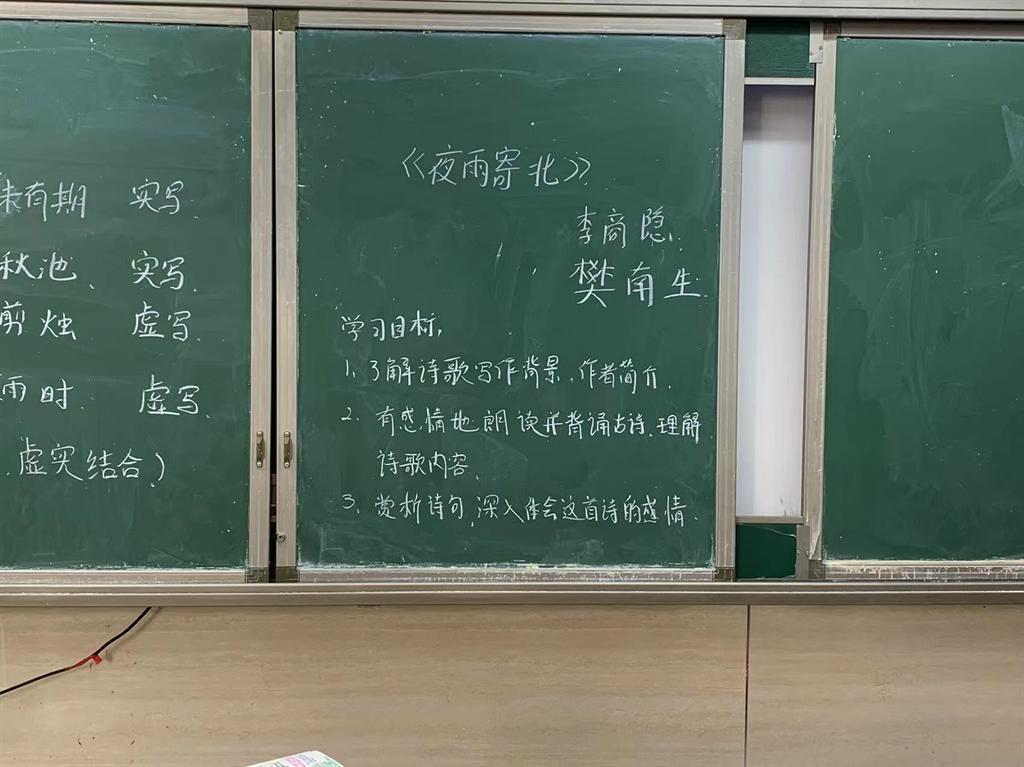 未有期 实写
秋池、 实写
剪烛 虚写
雨时. 虚写
虚实结合)
《夜雨寄北》
李商隐
樊南生
学习目标:
1、了解诗歌写作背景,作者简介.
2. 有感情地朗读并背诵古诗、理解
诗歌内容.
3、赏析诗句,深入体会这首诗的感情.